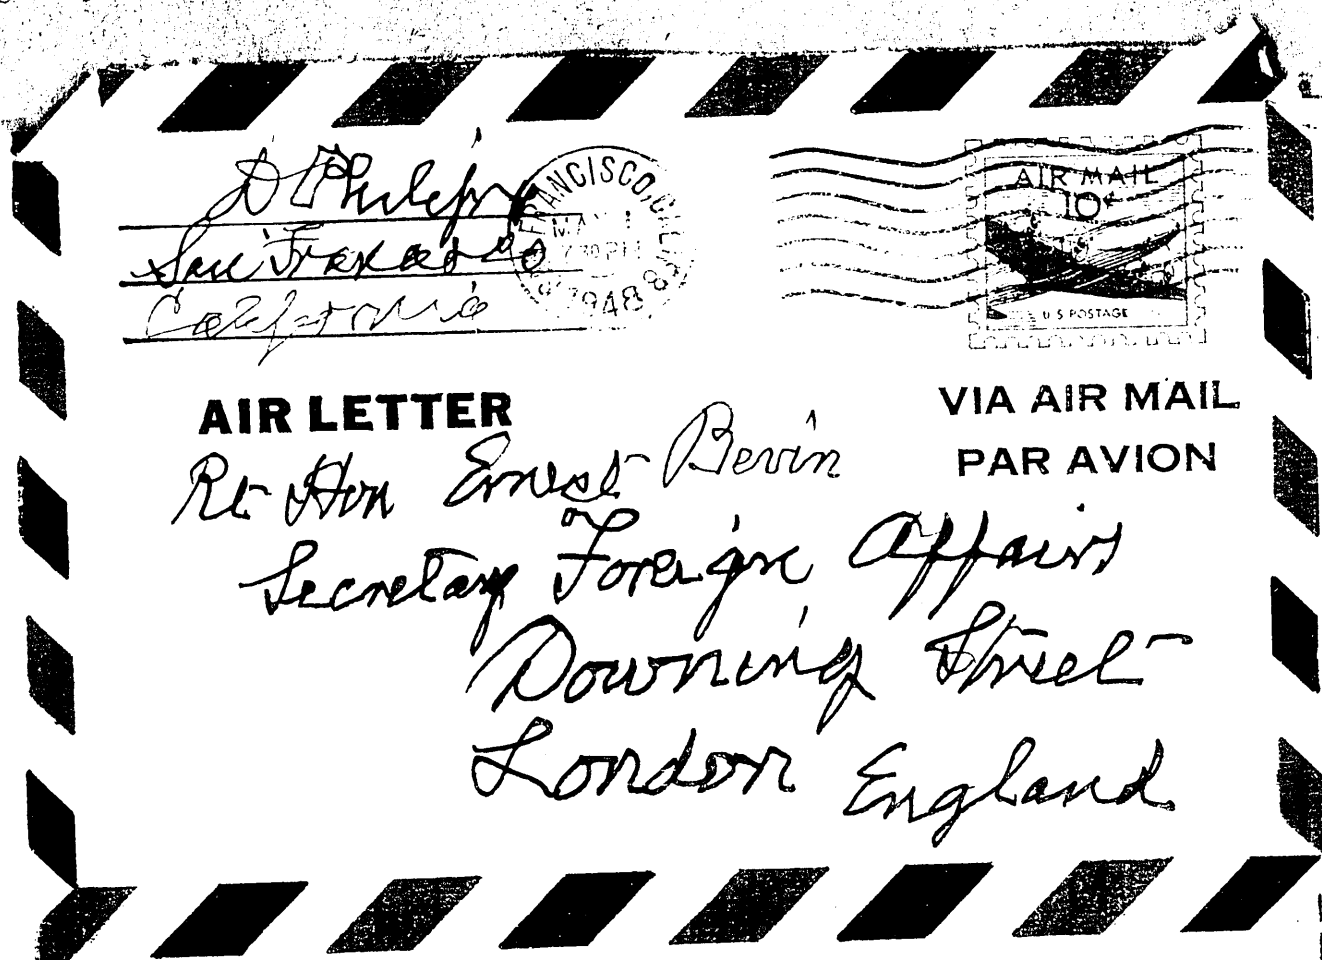 D Philips
San Francisco
California
FRANCISCO, CALIF.
MAY 1
7 30 PM
1948
AIR MAIL
10¢
U S POSTAGE
AIR LETTER
VIA AIR MAIL
PAR AVION
Rt Hon Ernest Bevin
Secretary Foreign Affairs
Downing Street
London England